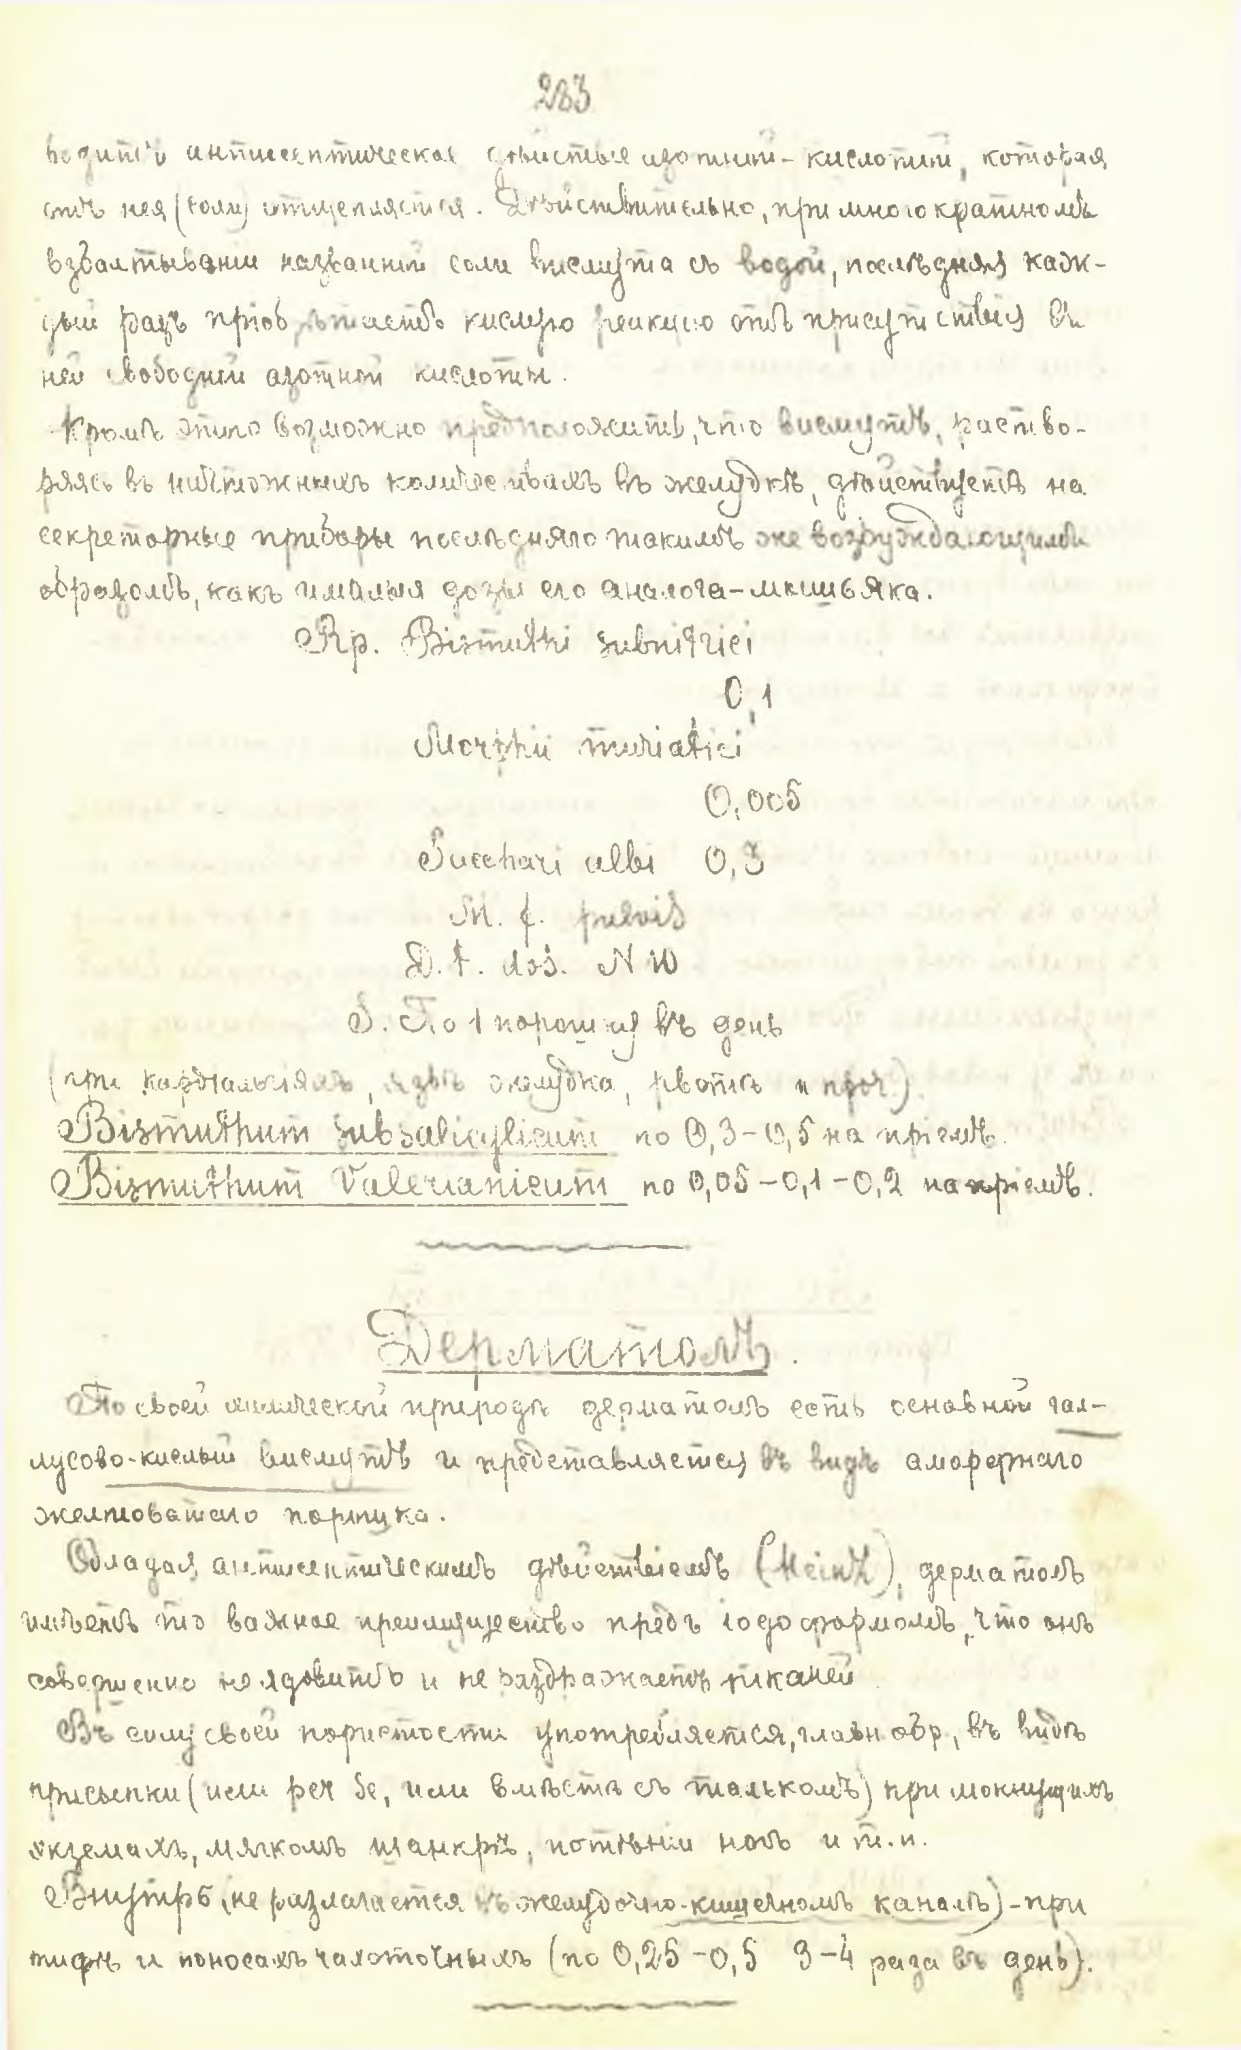 283
водить и антисептическое дѣйствіе азотной-кислоты, которая
отъ нея (соли) отщепляется. Дѣйствительно, при многократномъ
взбалтываніи названной соли висмута съ водой, послѣдняя каж-
дый разъ пріобрѣтаетъ кислую реакцію отъ присутствія въ
ней свободной азотной кислоты.
Кромѣ этого возможно предположить, что висмутъ, раство-
ряясь въ ничтожныхъ количествахъ въ желудкѣ, дѣйствуетъ на
секреторные приборы послѣдняго такимъ же возбуждающимъ
образомъ, какъ и малыя дозы его аналога-мышьяка.
Rp. Bismuthi subnitrici
0,1
Morphii muriatici
0,005
Sacchari albi 0,3
M. f. pulvis
D. t. dos. N 10
S. По 1 порошку въ день
(при кардіальгіяхъ, язвѣ желудка, рвотѣ и проч.)
Bismuthum subsalicylicum по 0,3-0,5 на пріемъ.
Bismuthum Valerianicum по 0,05-0,1-0,2 на пріемъ.
Дерматолъ.
По своей химической природѣ дерматолъ есть основной гал-
лусово-кислый висмутъ и представляется въ видѣ аморфнаго
желтоватаго порошка.
Обладая антисептическимъ дѣйствіемъ (Heinz), дерматолъ
имѣетъ то важное преимущество предъ іодоформомъ, что онъ
совершенно не ядовитъ и не раздражаетъ тканей
Въ силу своей пористости употребляется, главн обр, въ видѣ
присыпки (или per se, или вмѣстѣ съ талькомъ) при мокнущихъ
экземахъ, мягкомъ шанкрѣ, потѣніи ногъ и т.п.
Внутрь (не разлагается въ желудочно-кишечномъ каналѣ)-при
тифѣ и поносахъ чахоточныхъ (по 0,25-0,5 3-4 раза въ день).